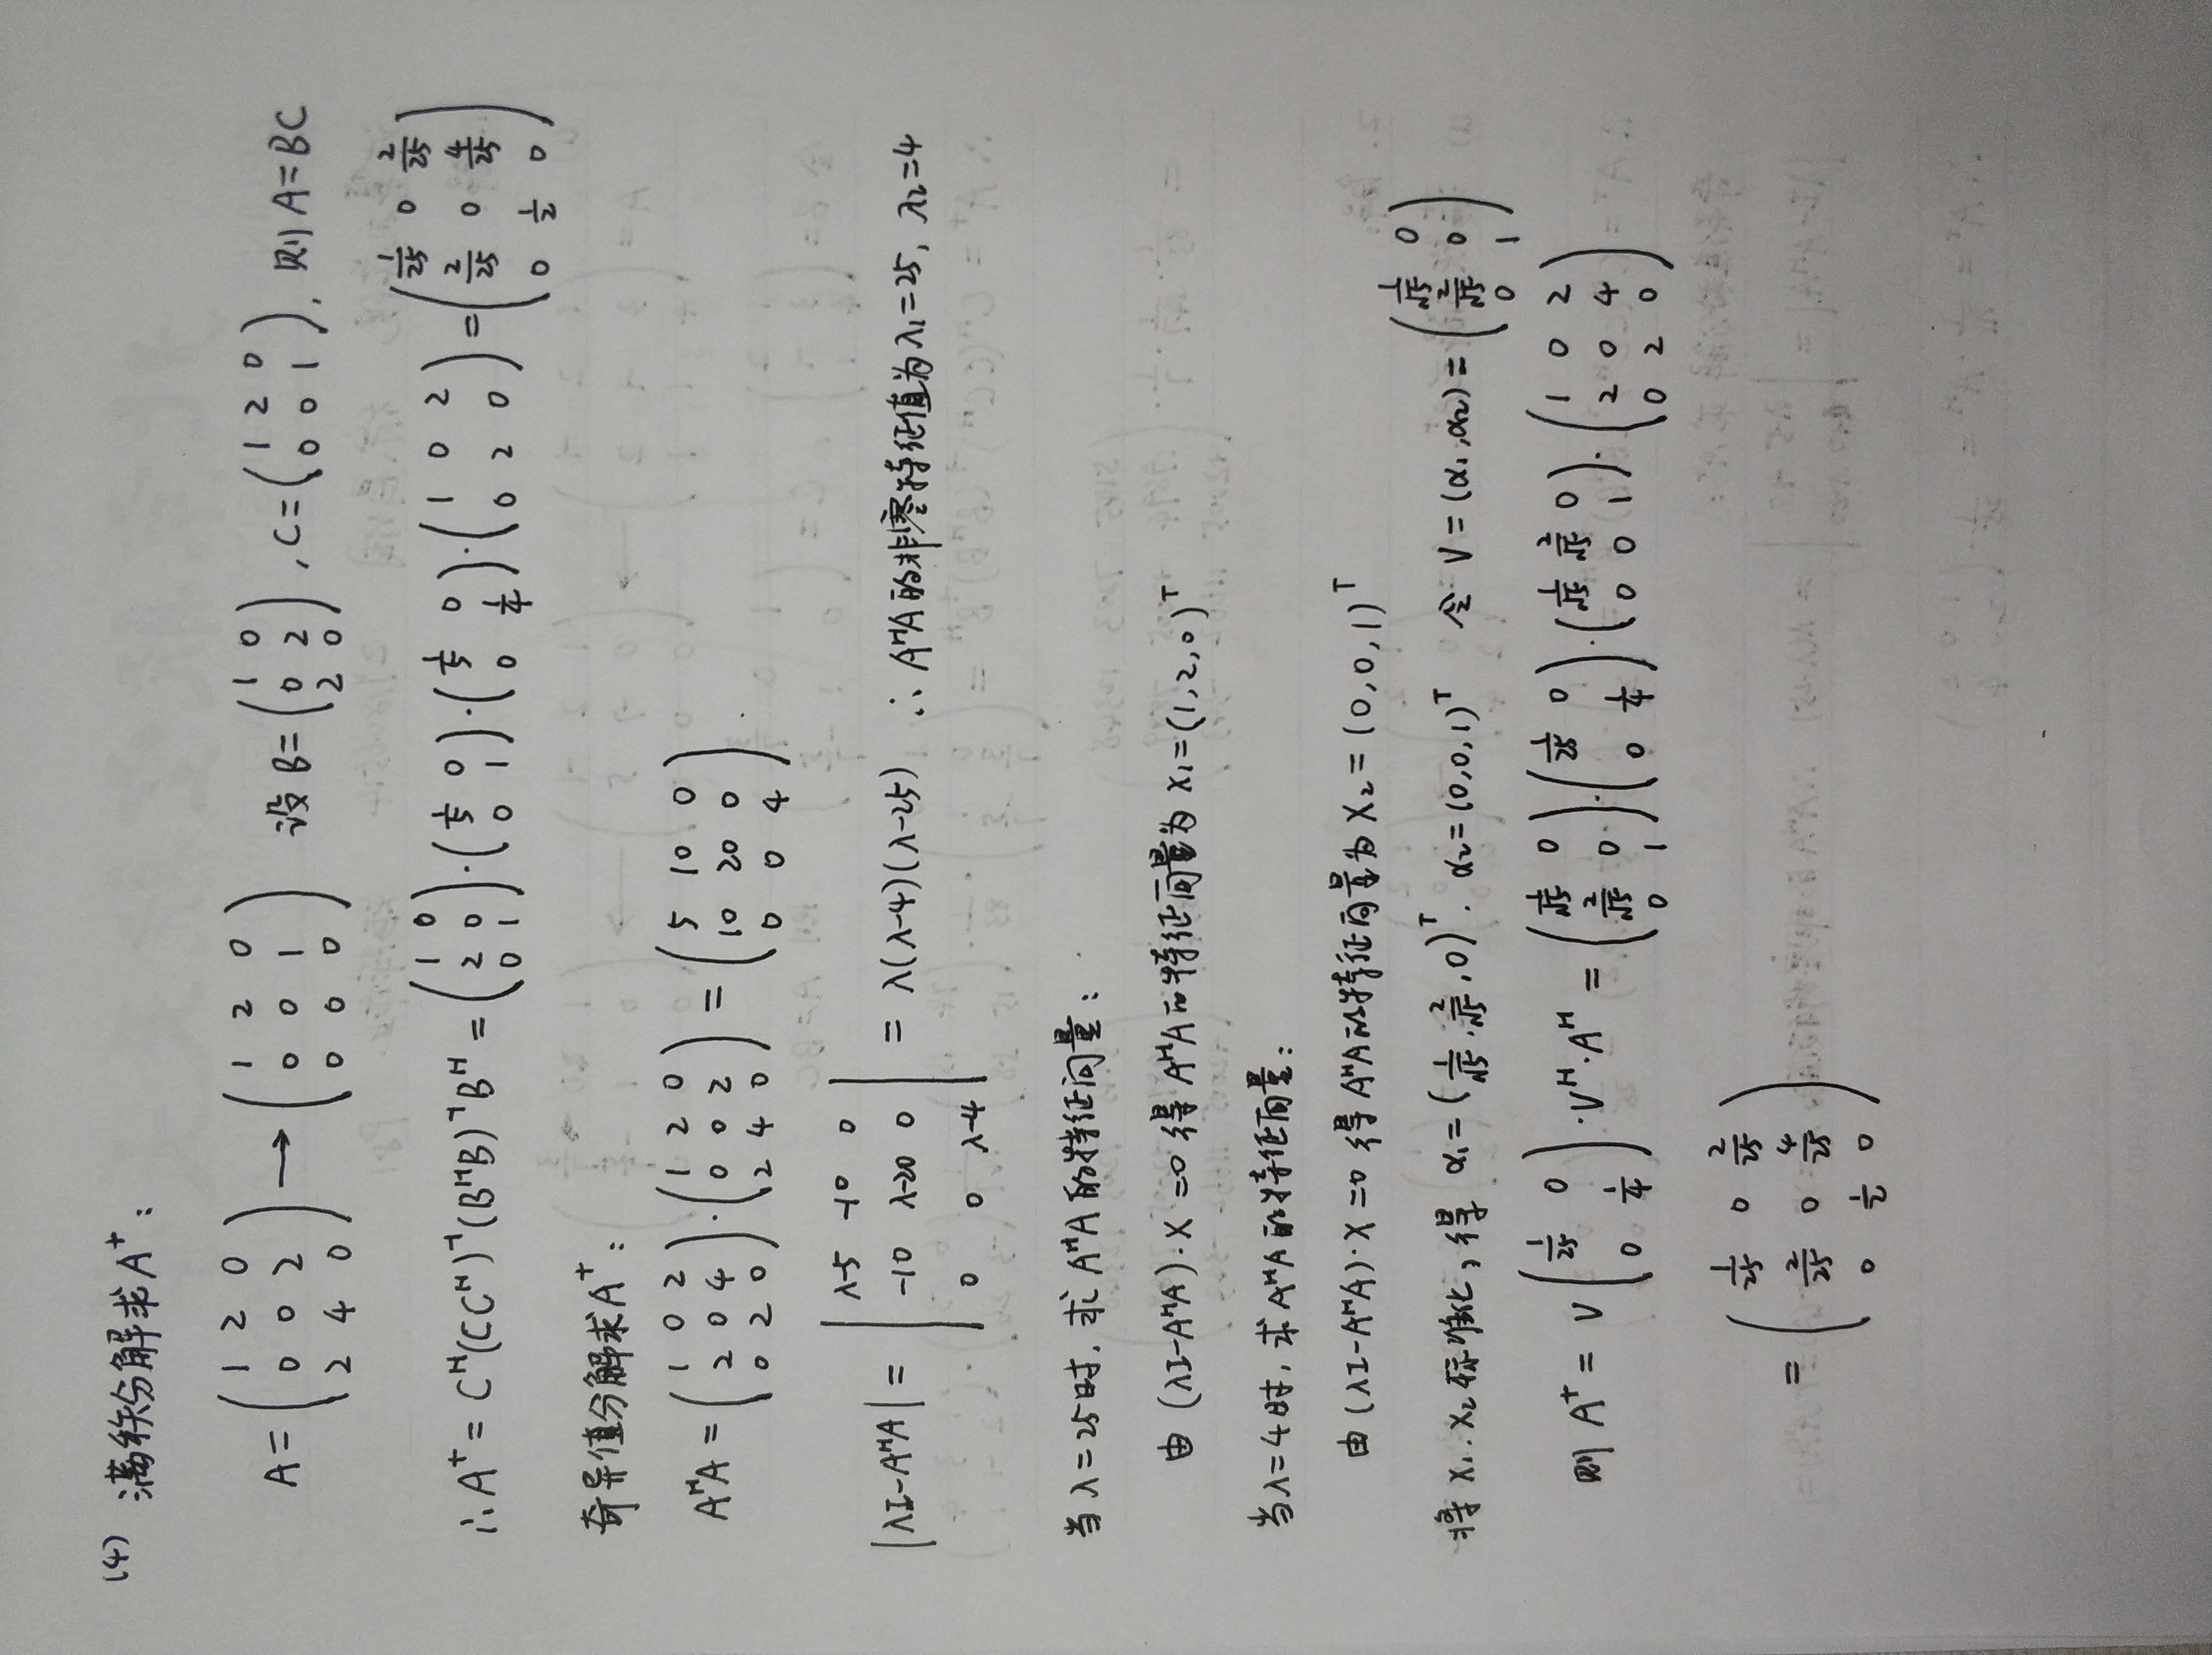 (4) 满秩分解求A⁺:
A = \begin{pmatrix} 1 & 2 & 0 \\ 0 & 0 & 2 \\ 2 & 4 & 0 \end{pmatrix} \longrightarrow \begin{pmatrix} 1 & 2 & 0 \\ 0 & 0 & 1 \\ 0 & 0 & 0 \end{pmatrix} 设 B = \begin{pmatrix} 1 & 0 \\ 0 & 2 \\ 2 & 0 \end{pmatrix}, C = \begin{pmatrix} 1 & 2 & 0 \\ 0 & 0 & 1 \end{pmatrix}, 则 A = BC
∴ A⁺ = C^H(CC^H)^{-1}(B^HB)^{-1}B^H = \begin{pmatrix} 1 & 0 \\ 2 & 0 \\ 0 & 1 \end{pmatrix} · \begin{pmatrix} \frac{1}{5} & 0 \\ 0 & 1 \end{pmatrix} · \begin{pmatrix} \frac{1}{5} & 0 \\ 0 & \frac{1}{4} \end{pmatrix} · \begin{pmatrix} 1 & 0 & 2 \\ 0 & 2 & 0 \end{pmatrix} = \begin{pmatrix} \frac{1}{25} & 0 & \frac{2}{25} \\ \frac{2}{25} & 0 & \frac{4}{25} \\ 0 & \frac{1}{2} & 0 \end{pmatrix}
奇异值分解求A⁺:
A^HA = \begin{pmatrix} 1 & 0 & 2 \\ 2 & 0 & 4 \\ 0 & 2 & 0 \end{pmatrix} · \begin{pmatrix} 1 & 2 & 0 \\ 0 & 0 & 2 \\ 2 & 4 & 0 \end{pmatrix} = \begin{pmatrix} 5 & 10 & 0 \\ 10 & 20 & 0 \\ 0 & 0 & 4 \end{pmatrix}.
|λI-A^HA| = \begin{vmatrix} λ-5 & -10 & 0 \\ -10 & λ-20 & 0 \\ 0 & 0 & λ-4 \end{vmatrix} = λ(λ-4)(λ-25) ∴ A^HA的非零特征值为λ₁=25, λ₂=4
当λ=25时, 求A^HA的特征向量:
由(λI-A^HA)·X=0 得A^HA的特征向量为 X₁=(1,2,0)^T
当λ=4时, 求A^HA的特征向量:
由(λI-A^HA)·X=0 得A^HA的特征向量为 X₂=(0,0,1)^T
将X₁.X₂标准化,得 α₁=(\frac{1}{\sqrt{5}}, \frac{2}{\sqrt{5}}, 0)^T. α₂=(0,0,1)^T 令 V=(α₁,α₂)= \begin{pmatrix} \frac{1}{\sqrt{5}} & 0 \\ \frac{2}{\sqrt{5}} & 0 \\ 0 & 1 \end{pmatrix}
则 A⁺ = V \begin{pmatrix} \frac{1}{25} & 0 \\ 0 & \frac{1}{4} \end{pmatrix} · V^H·A^H = \begin{pmatrix} \frac{1}{\sqrt{5}} & 0 \\ \frac{2}{\sqrt{5}} & 0 \\ 0 & 1 \end{pmatrix} · \begin{pmatrix} \frac{1}{25} & 0 \\ 0 & \frac{1}{4} \end{pmatrix} · \begin{pmatrix} \frac{1}{\sqrt{5}} & \frac{2}{\sqrt{5}} & 0 \\ 0 & 0 & 1 \end{pmatrix} · \begin{pmatrix} 1 & 0 & 2 \\ 2 & 0 & 4 \\ 0 & 2 & 0 \end{pmatrix}
= \begin{pmatrix} \frac{1}{25} & 0 & \frac{2}{25} \\ \frac{2}{25} & 0 & \frac{4}{25} \\ 0 & \frac{1}{2} & 0 \end{pmatrix}